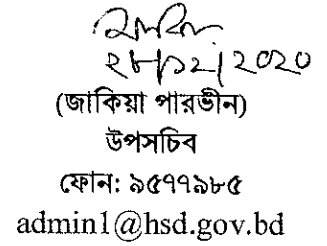 ২৮/১২/২০২০
(জাকিয়া পারভীন)
উপসচিব
ফোন: ৯৫৭৭৯৮৫
admin1@hsd.gov.bd